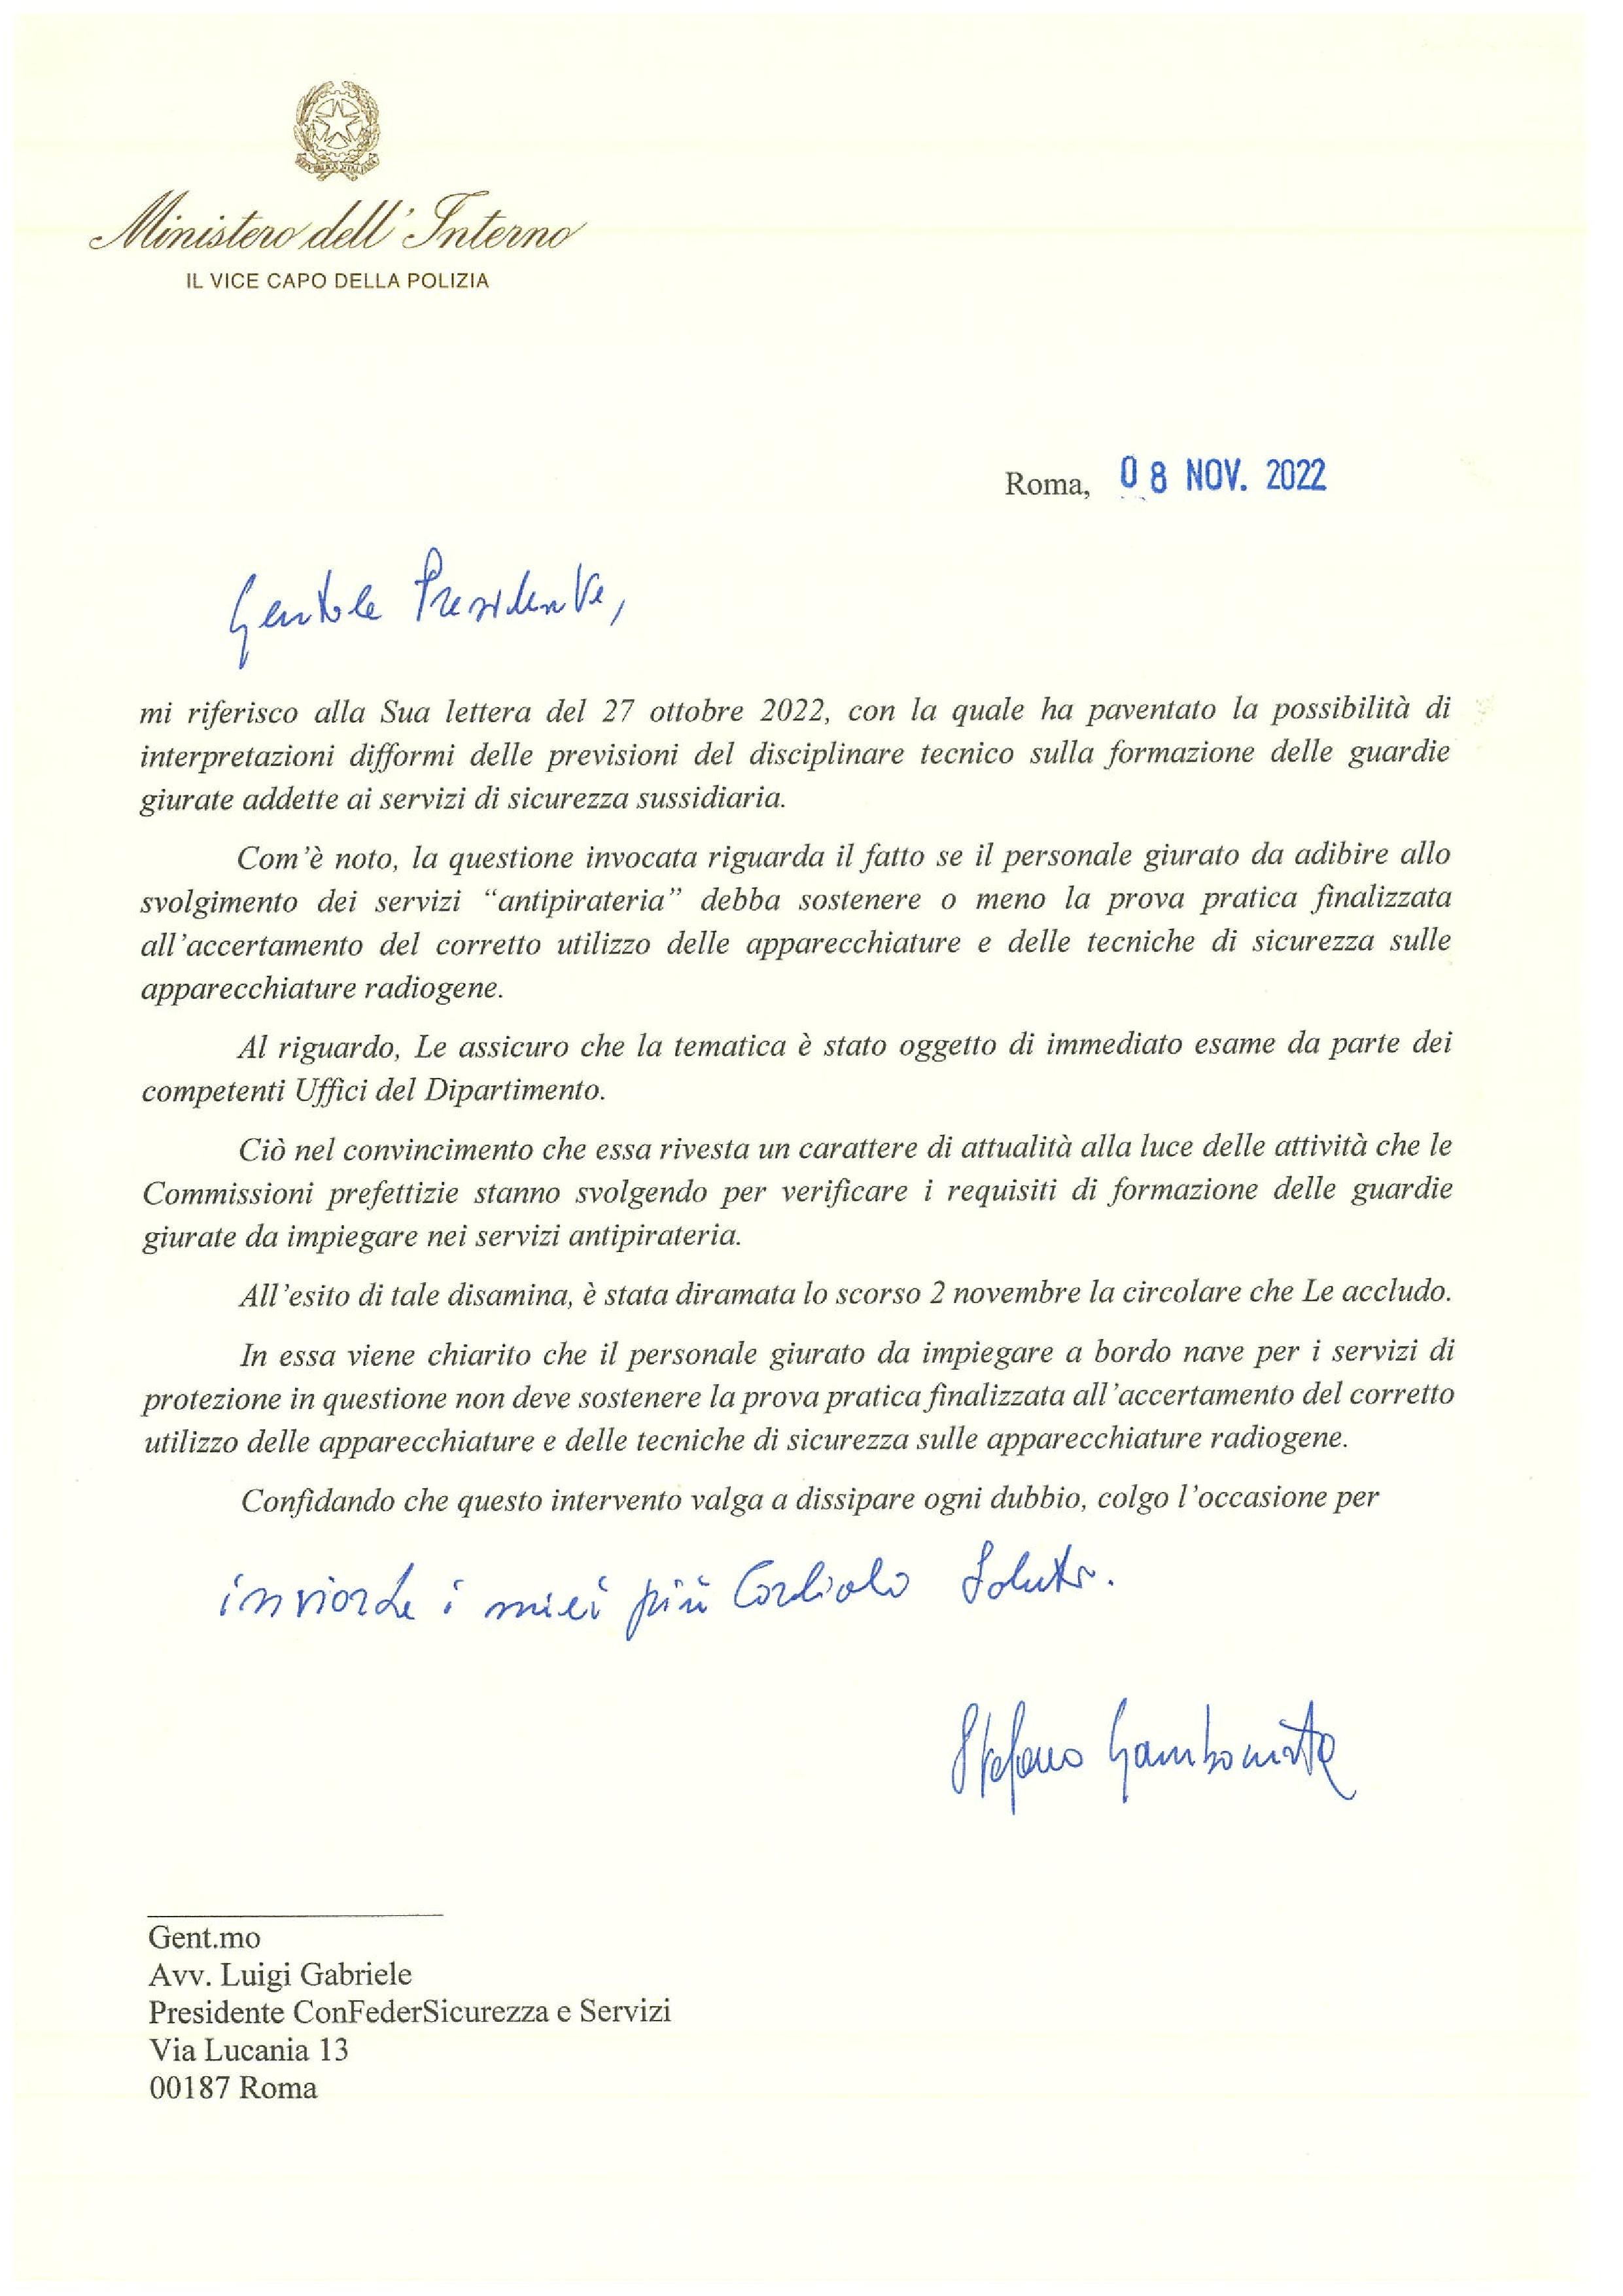 Ministero dell'Interno
IL VICE CAPO DELLA POLIZIA
Roma, 08 NOV. 2022
Gentile Presidente,
mi riferisco alla Sua lettera del 27 ottobre 2022, con la quale ha paventato la possibilità di
interpretazioni difformi delle previsioni del disciplinare tecnico sulla formazione delle guardie
giurate addette ai servizi di sicurezza sussidiaria.
Com'è noto, la questione invocata riguarda il fatto se il personale giurato da adibire allo
svolgimento dei servizi "antipirateria" debba sostenere o meno la prova pratica finalizzata
all'accertamento del corretto utilizzo delle apparecchiature e delle tecniche di sicurezza sulle
apparecchiature radiogene.
Al riguardo, Le assicuro che la tematica è stato oggetto di immediato esame da parte dei
competenti Uffici del Dipartimento.
Ciò nel convincimento che essa rivesta un carattere di attualità alla luce delle attività che le
Commissioni prefettizie stanno svolgendo per verificare i requisiti di formazione delle guardie
giurate da impiegare nei servizi antipirateria.
All'esito di tale disamina, è stata diramata lo scorso 2 novembre la circolare che Le accludo.
In essa viene chiarito che il personale giurato da impiegare a bordo nave per i servizi di
protezione in questione non deve sostenere la prova pratica finalizzata all'accertamento del corretto
utilizzo delle apparecchiature e delle tecniche di sicurezza sulle apparecchiature radiogene.
Confidando che questo intervento valga a dissipare ogni dubbio, colgo l'occasione per
inviarLe i miei più Cordiali Saluti.
Stefano Gambacurta
Gent.mo
Avv. Luigi Gabriele
Presidente ConFederSicurezza e Servizi
Via Lucania 13
00187 Roma